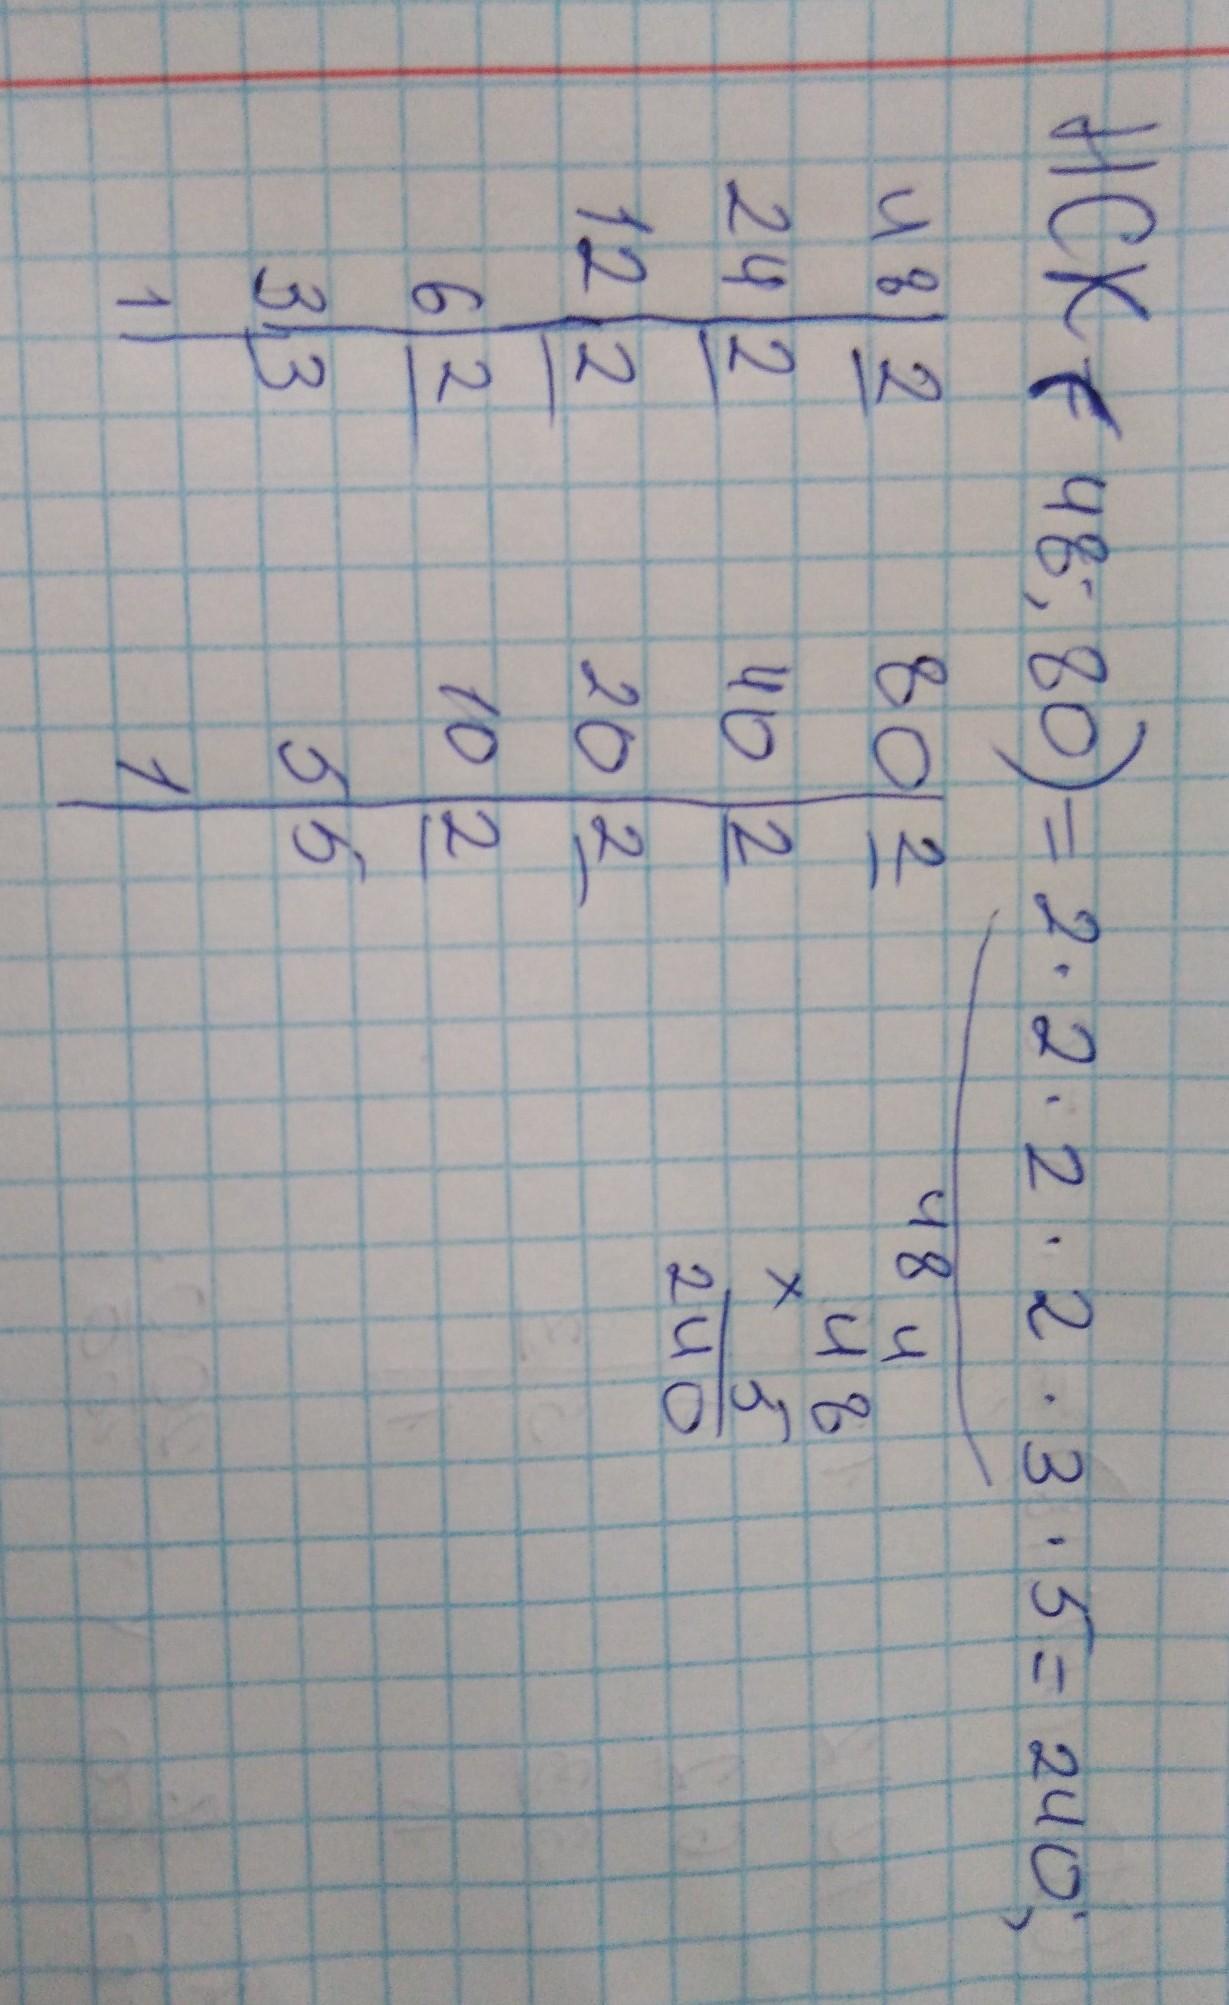 НСК (48; 80) = 2·2·2·2·3·5 = 240;
48 | 2
24 | 2
12 | 2
6 | 2
3 | 3
1
80 | 2
40 | 2
20 | 2
10 | 2
5 | 5
1
48 4
48
× 5
240